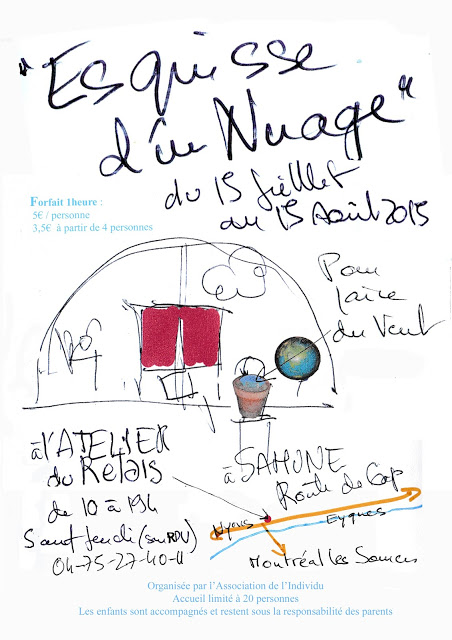 "Esquisse
d'un Nuage"
du 15 Juillet
au 15 Août 2015
Forfait 1heure :
5€ / personne
3,5€ à partir de 4 personnes
Pour
faire
du Vent
à l'ATELIER
du Relais
de 10 à 19h
Sauf jeudi (sur RDV)
04-75-27-40-11
à SAHUNE
Route de Gap
Nyons
Eygues
Montréal les Sources
Organisée par l'Association de l'Individu
Accueil limité à 20 personnes
Les enfants sont accompagnés et restent sous la responsabilité des parents